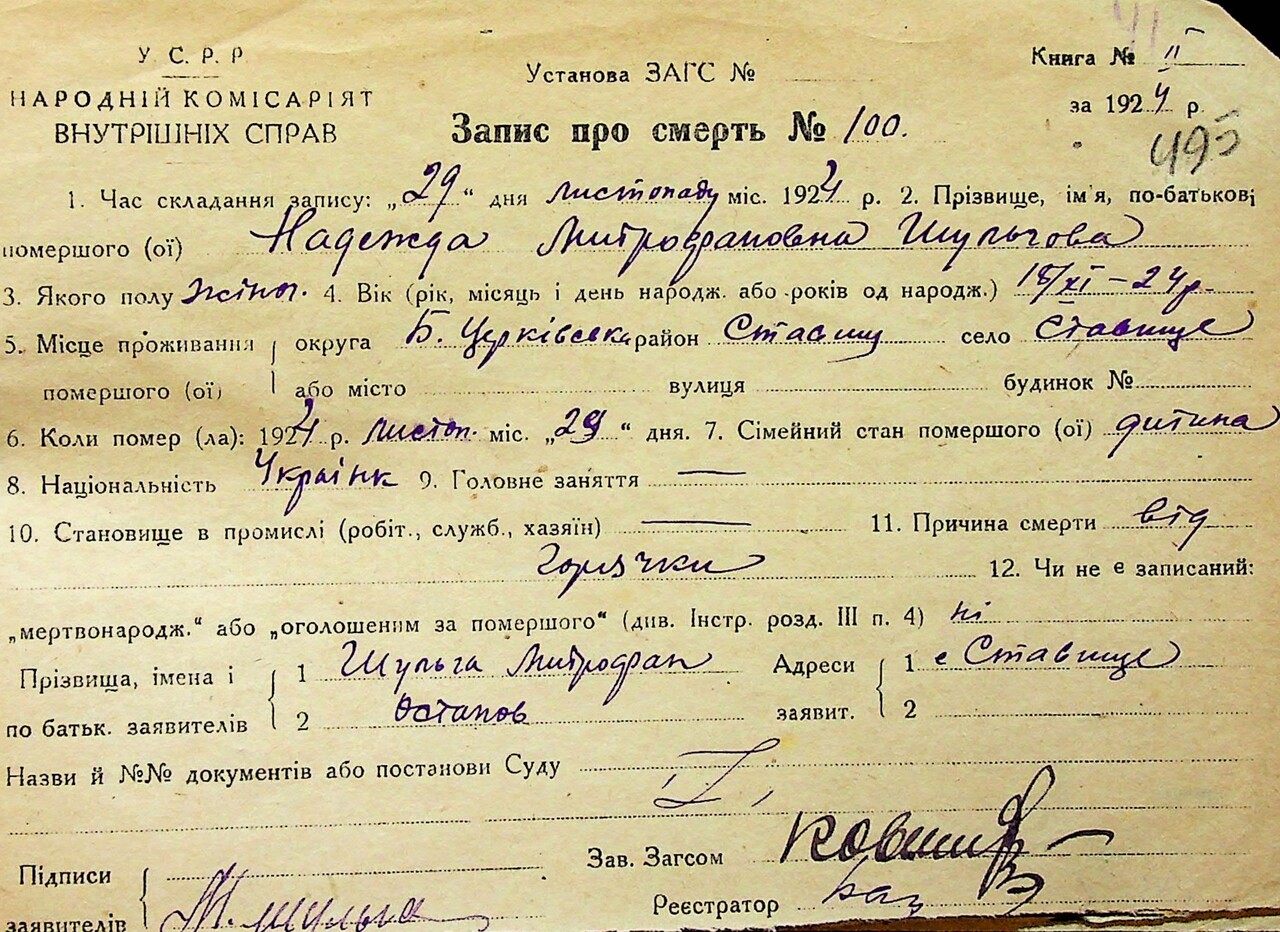 У. С. Р. Р.
НАРОДНІЙ КОМІСАРІЯТ
ВНУТРІШНІХ СПРАВ
Установа ЗАГС №
Книга № II
за 1924 р.
495
Запис про смерть № 100.
1. Час складання запису: „29“ дня листопаду міс. 1924 р. 2. Прізвище, ім'я, по-батькові
помершого (ої) Надежда Митрофановна Шульгова
3. Якого полу жіноч. 4. Вік (рік, місяць і день народж. або років од народж.) 18/XI – 24 р.
5. Місце проживання округа Б. Церківська район Ставищ село Ставище
помершого (ої) або місто вулиця будинок №
6. Коли помер (ла): 1924 р. листоп. міс. „29“ дня. 7. Сімейний стан помершого (ої) дитина
8. Національність Українк 9. Головне заняття —
10. Становище в промислі (робіт., служб., хазяїн) — 11. Причина смерти від
горячки 12. Чи не є записаний:
„мертвонародж.“ або „оголошеним за помершого“ (див. Інстр. розд. III п. 4) ні
Прізвища, імена і 1 Шульга Митрофан Адреси 1 с Ставище
по батьк. заявителів 2 Остапов заявит. 2
Назви й №№ документів або постанови Суду
Зав. Загсом
Підписи
Реєстратор
заявителів М. Шульга